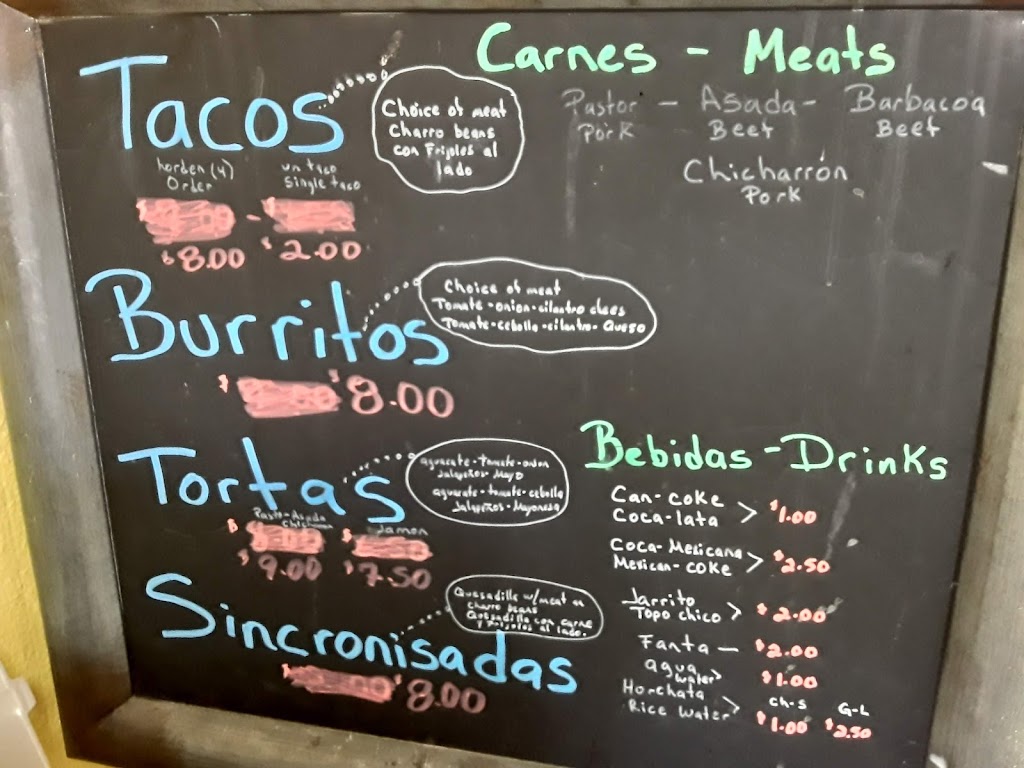 Tacos
horden (4)
Order
un taco
Single taco
$8.00
$2.00
Choice of meat
Charro beans
con Frijoles al
lado
Carnes - Meats
Pastor - Asada - Barbacoa
Pork Beef Beef
Chicharrón
Pork
Burritos
$ $8.00
Choice of meat
Tomate-onion-cilantro chees
Tomate-cebolla-cilantro-Queso
Tortas
Pasto-Asada
Jamon
$9.00
$7.50
aguacate-tomate-onion
Jalapeños-Mayo
aguacate-tomate-cebolla
Jalapeños-Mayonesa
Sincronisadas
$8.00
Quesadilla w/meat
charro beans
Quesadilla con carne
Frijoles al lado.
Bebidas - Drinks
Can-coke
Coca-lata > $1.00
Coca-Mexicana
Mexican-coke > $2.50
Jarrito
Topo chico > $2.00
Fanta — $2.00
agua
water > $1.00
Horchata
Rice Water >
ch-s G-L
$1.00 $2.50